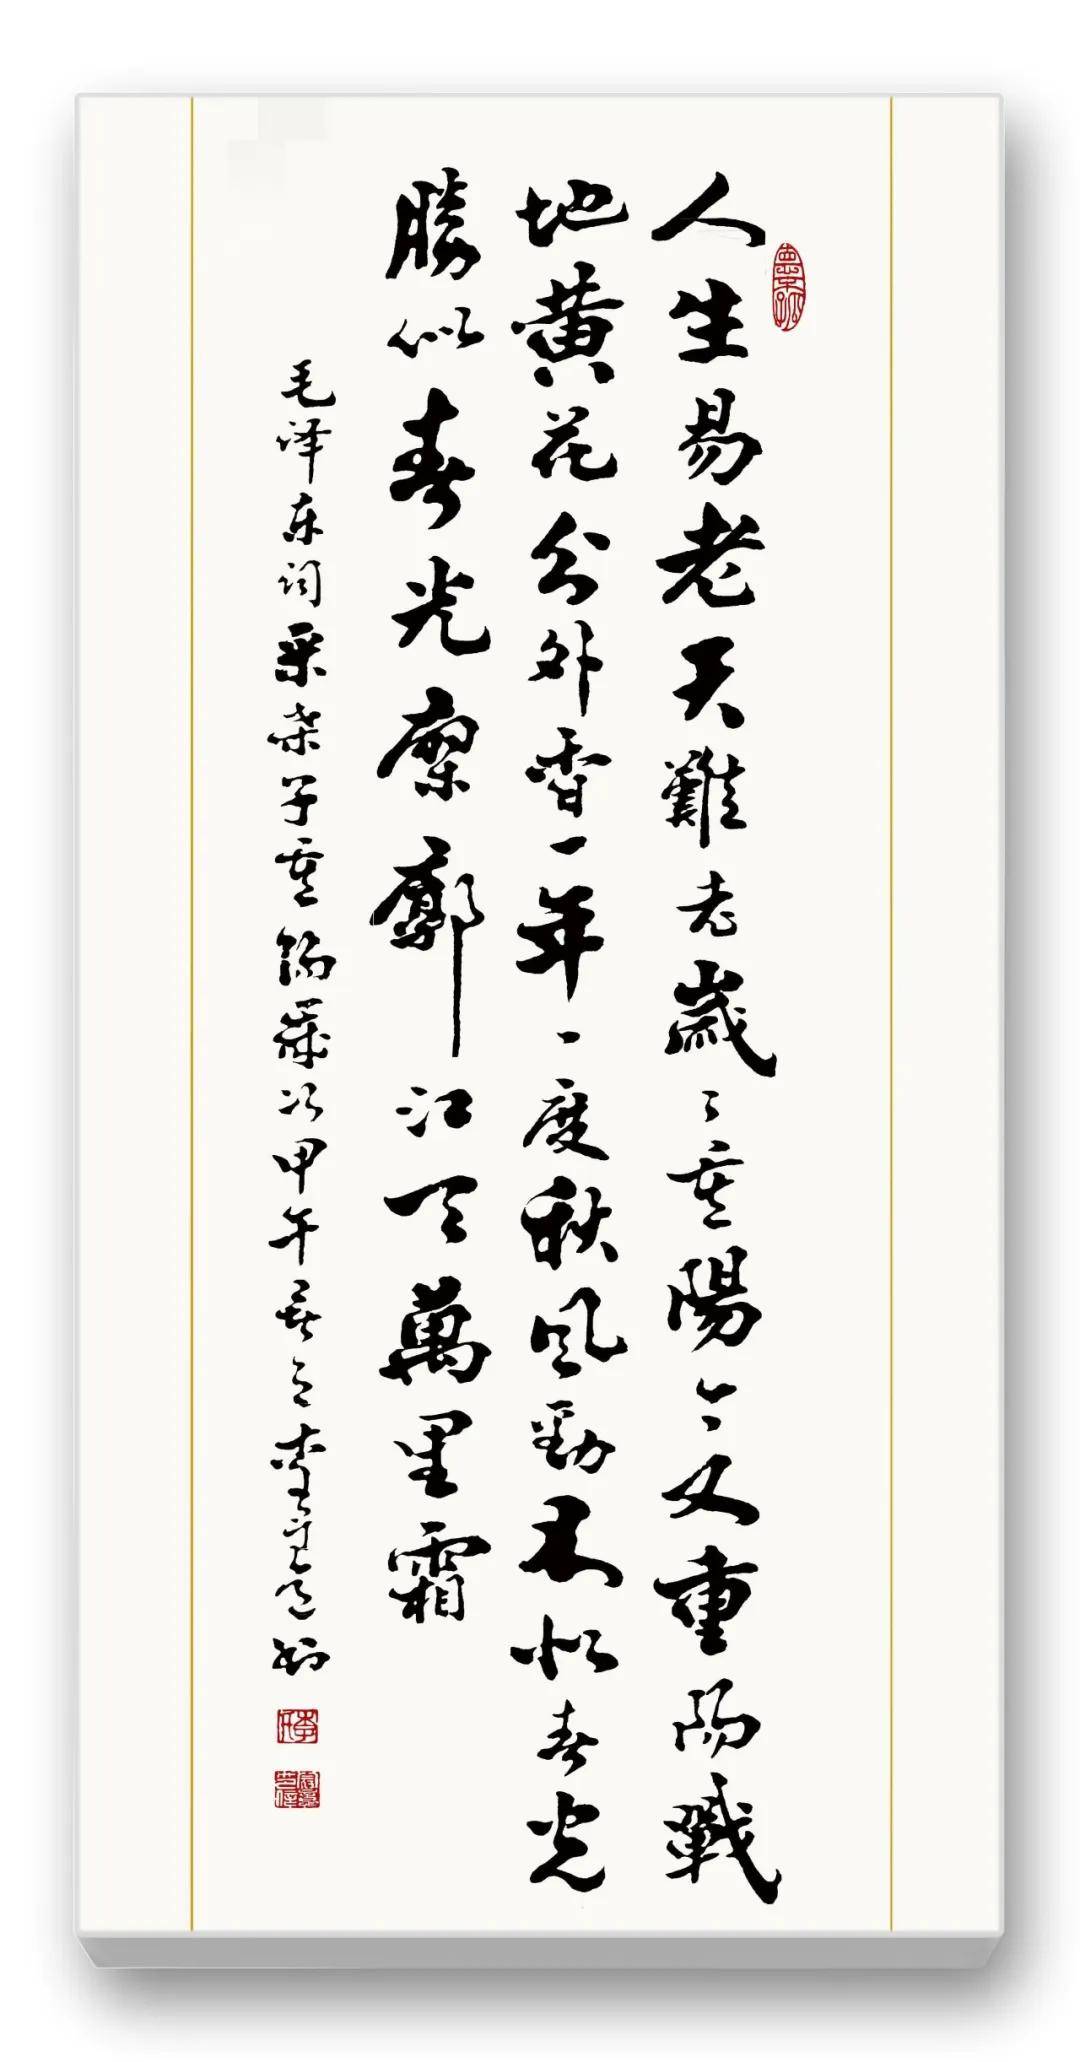 人生易老天難老歲〻重陽今又重陽戰
地黄花分外香一年一度秋风勁不似春光
勝似春光寥廓江天萬里霜
毛泽东词采桑子重陽歲次甲午